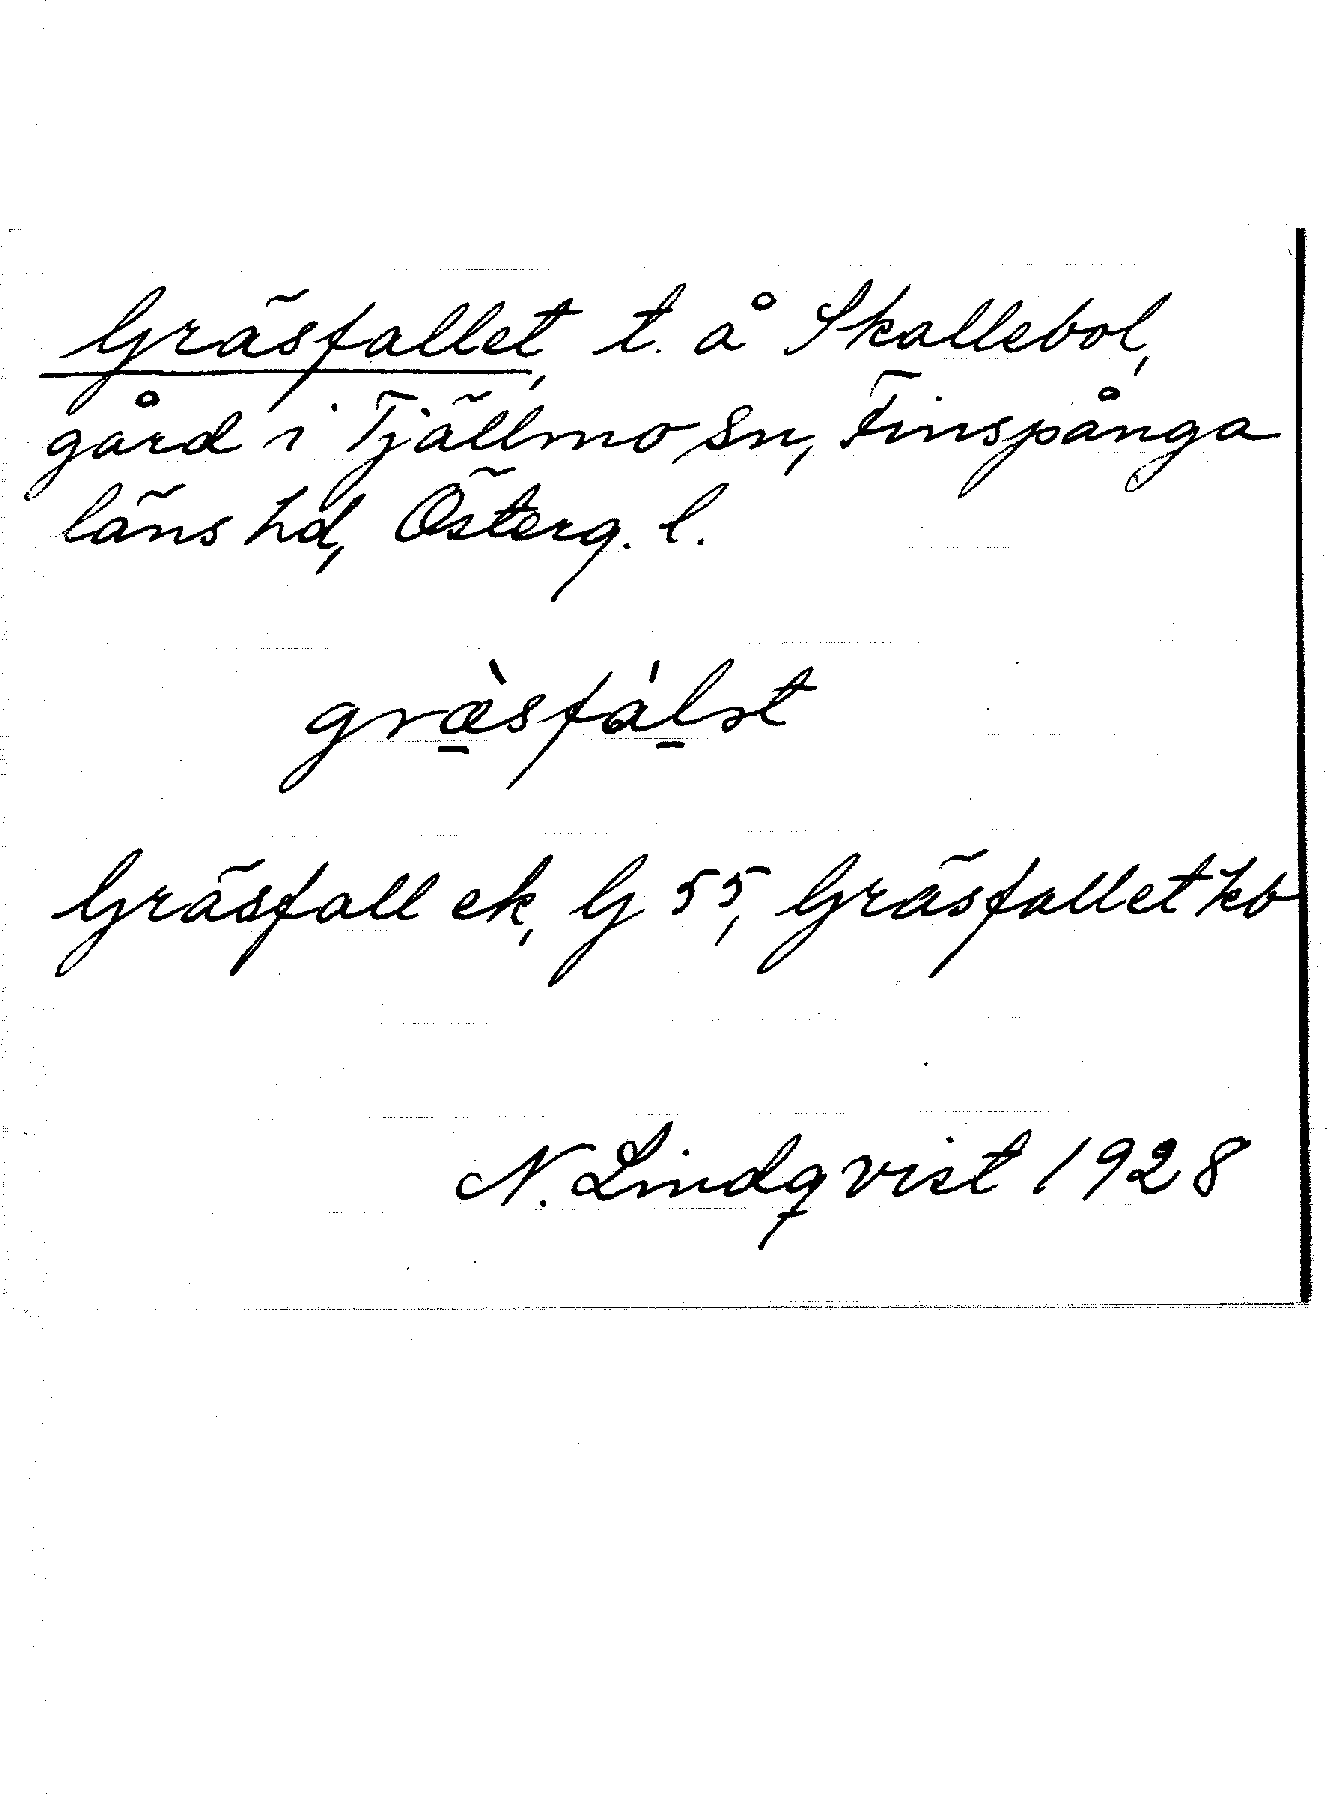 Gräsfallet, t. å Skallebol,
gård i Tjällmo sn, Finspånga
läns hd, Österg. l.
græ̀sfálət
Gräsfall ek, G 55, Gräsfallet kb
N. Lindqvist 1928